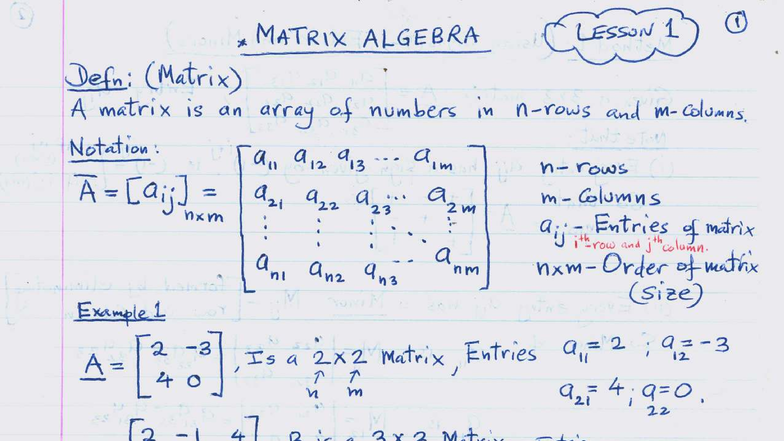 * MATRIX ALGEBRA
LESSON 1
1
Defn: (Matrix)
A matrix is an array of numbers in n-rows and m-columns.
Notation:
A̅ = [aij]nxm = [a11 a12 a13 ... a1m
a21 a22 a23 ... a2m
⋮ ⋮ ⋮ ⋱ ⋮
an1 an2 an3 anm]
n-rows
m-columns
aij - Entries of matrix
ith row and jth column.
nxm - Order of matrix
(size)
Example 1
A = [2 -3
4 0], Is a 2x2 Matrix, Entries a11 = 2 ; a12 = -3
n m
a21 = 4 ; a22 = 0.
[2 -1 4]